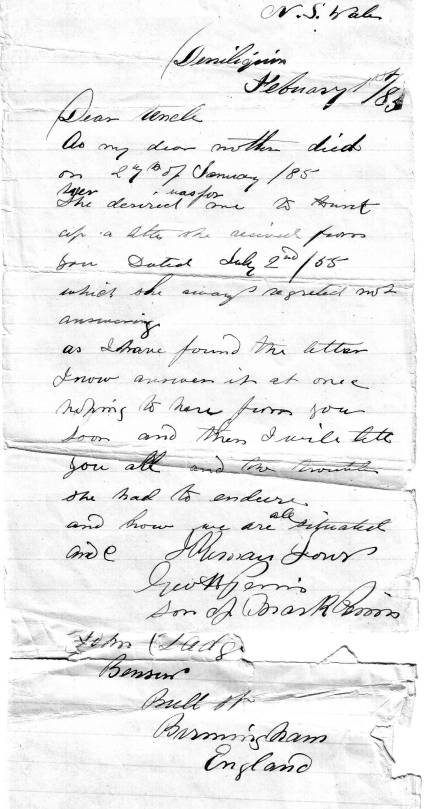 N. S. Wales
Deniliquin
February 1st /85
Dear Uncle
As my dear mother died
on 27th of January /85
She desired me to hunt
up a letter she recived from
you Dated July 2nd /55
which she always regreted not
answering
as I have found the letter
I now answer it at once
hoping to here from you
soon and then I will tell
you all and the trouble
she had to endure
and how we are all situated
and I Remain Yours
Geo H Perris
Son of Perris
John
Bull St
Birmingham
England